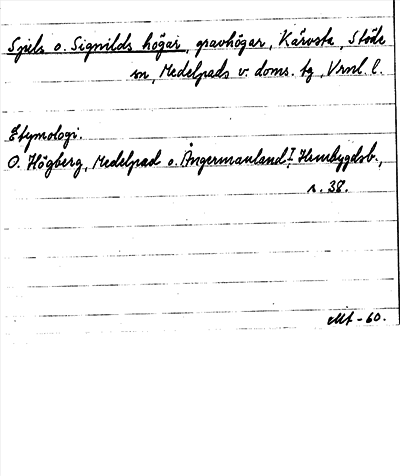 Spels o. Signilds högar, gravhögar, Kärvsta, Stöde
sn, Medelpads v. doms. tg, Vrnl. l.
Etymologi.
O. Högberg, Medelpad o. Ångermanland, I Hembygdsb.,
s. 38.
Mt -60.